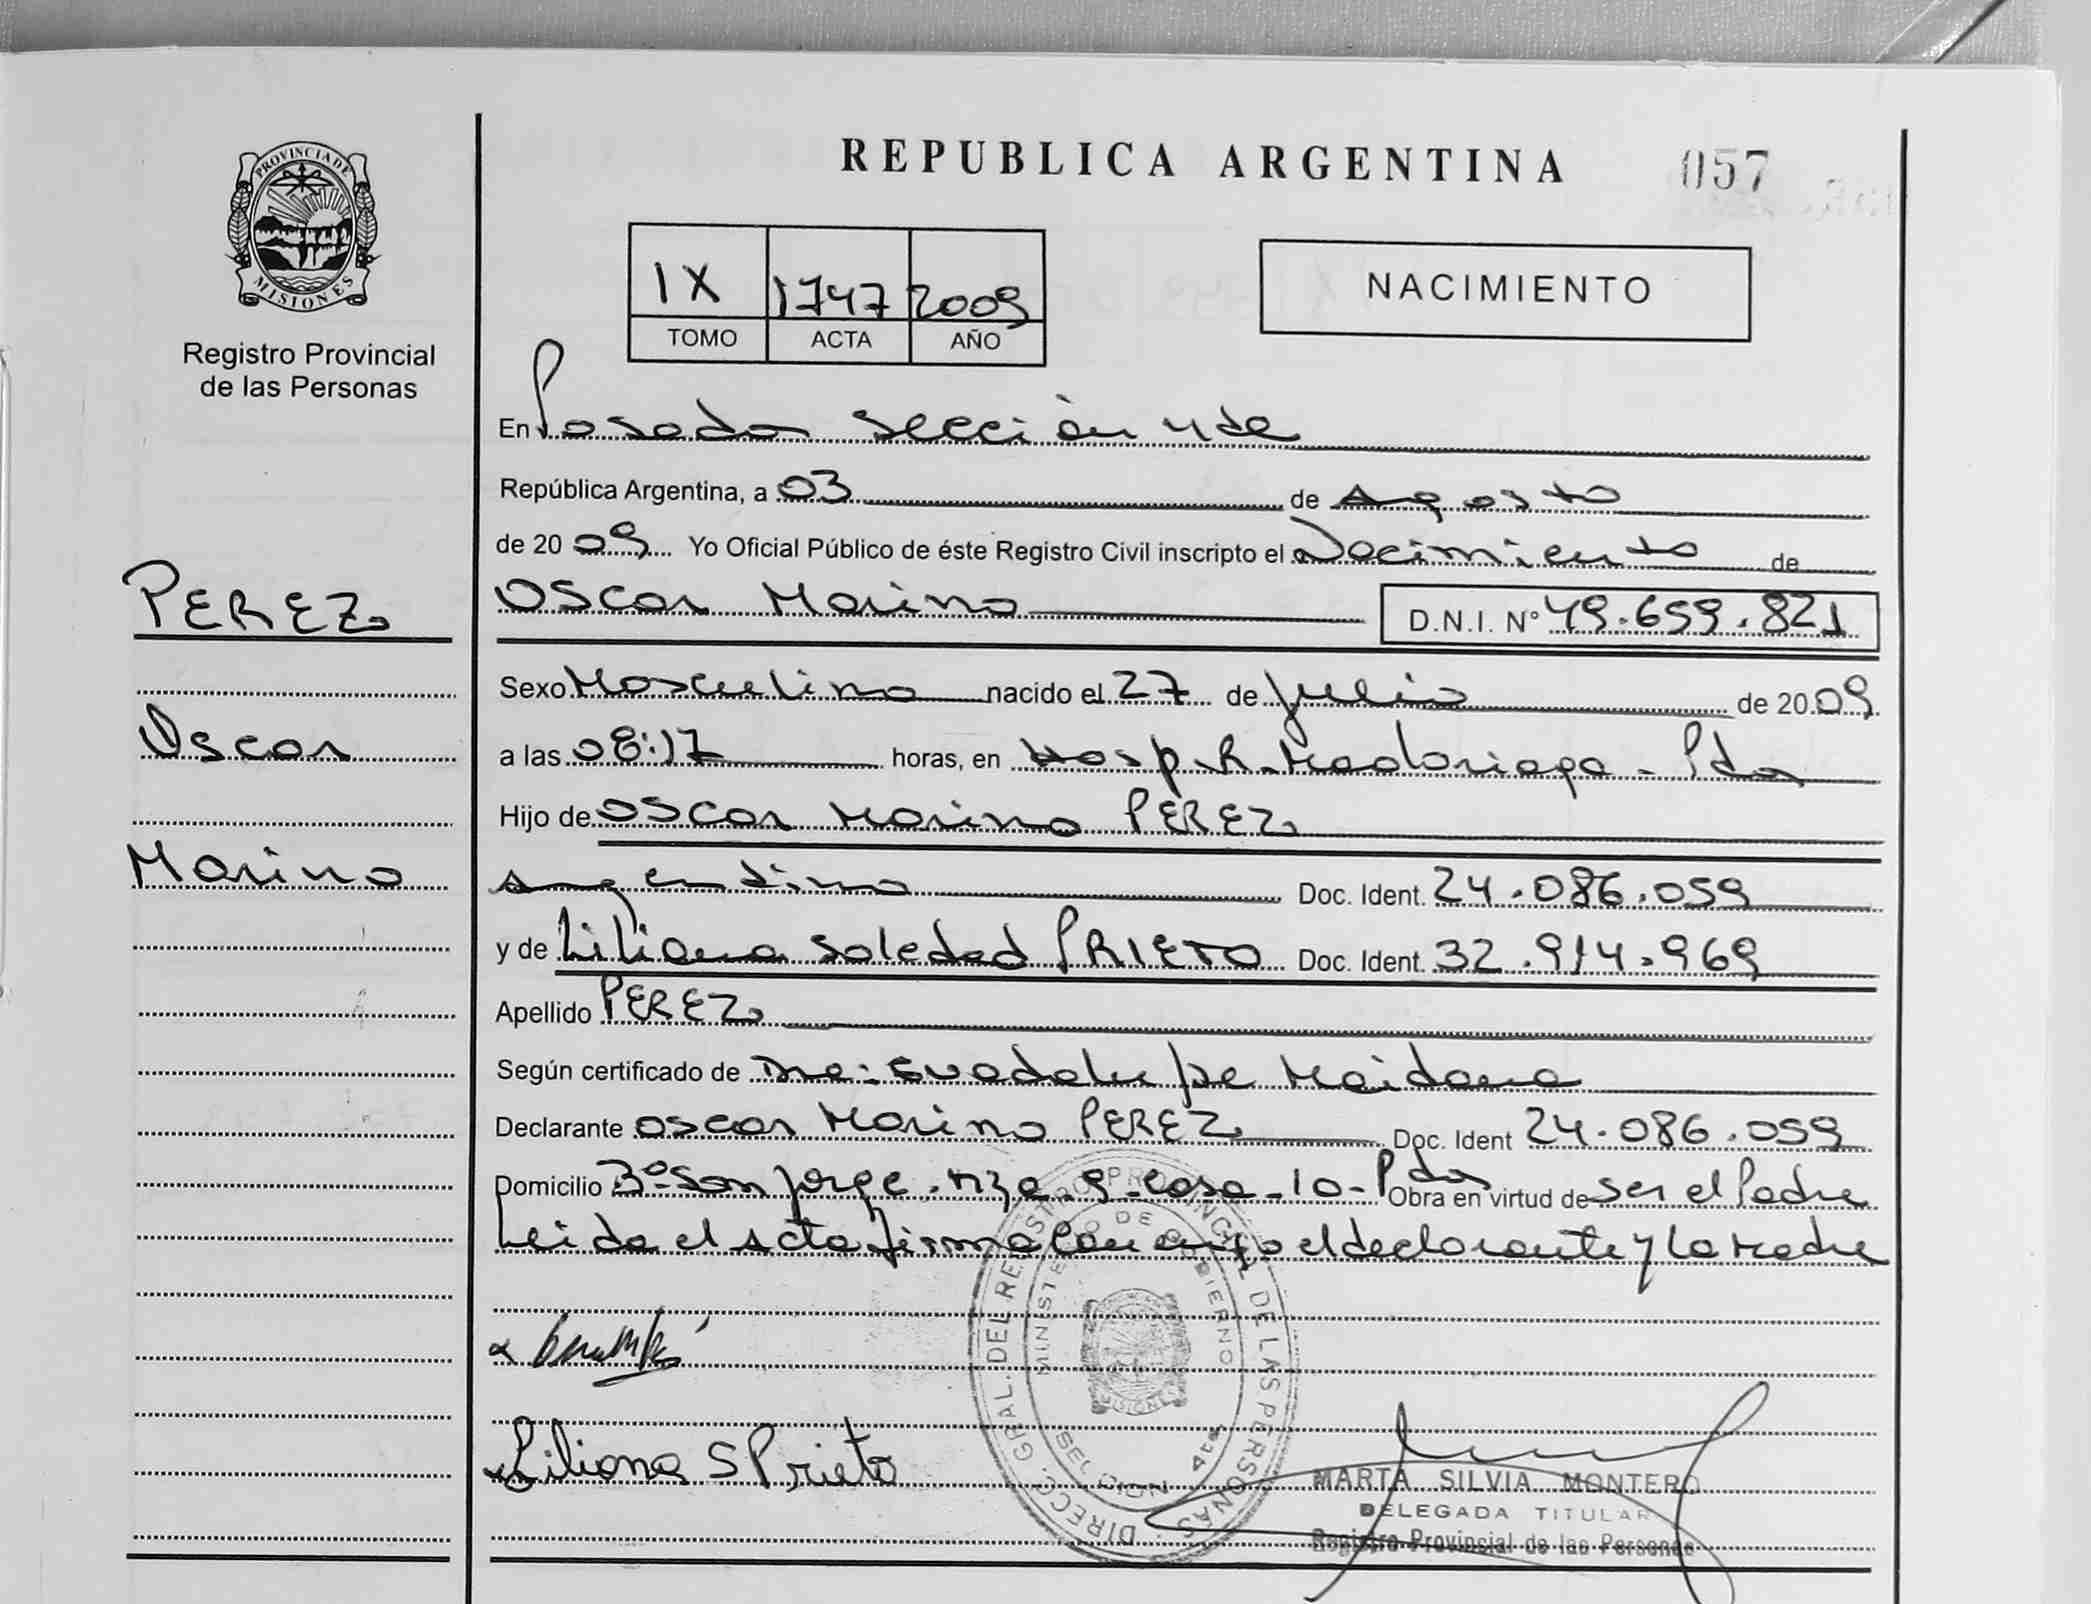 REPUBLICA ARGENTINA
057
PROVINCIA DE
MISIONES
Registro Provincial
de las Personas
IX 1747 2009
TOMO ACTA AÑO
NACIMIENTO
En Posadas sección 4ta
República Argentina, a 03 de Agosto
de 2009 Yo Oficial Público de éste Registro Civil inscripto el Nacimiento de
PEREZ
Oscar Marino D.N.I. Nº 49.659.821
Sexo Masculino nacido el 27 de julio de 2009
Oscar
a las 08:17 horas, en Hosp. R. Madariaga - Pdas
Hijo de Oscar Marino PEREZ
Marino
Argentino Doc. Ident. 24.086.059
y de Liliana Soledad PRIETO Doc. Ident. 32.914.969
Apellido PEREZ
Según certificado de Dra: Guadalupe Maidana
Declarante Oscar Marino PEREZ Doc. Ident 24.086.059
Domicilio Bº San Jorge. Mza. 9 - Casa - 10 - Pdas Obra en virtud de ser el Padre
Leida el Acta firma conmigo el declarante y la Madre
Liliana S Prieto
DIRECC. GRAL. DEL REGISTRO PROVINCIAL DE LAS PERSONAS
MINISTERIO DE GOBIERNO
MISIONES
SECCION 4ta
MARTA SILVIA MONTERO
DELEGADA TITULAR
Registro Provincial de las Personas